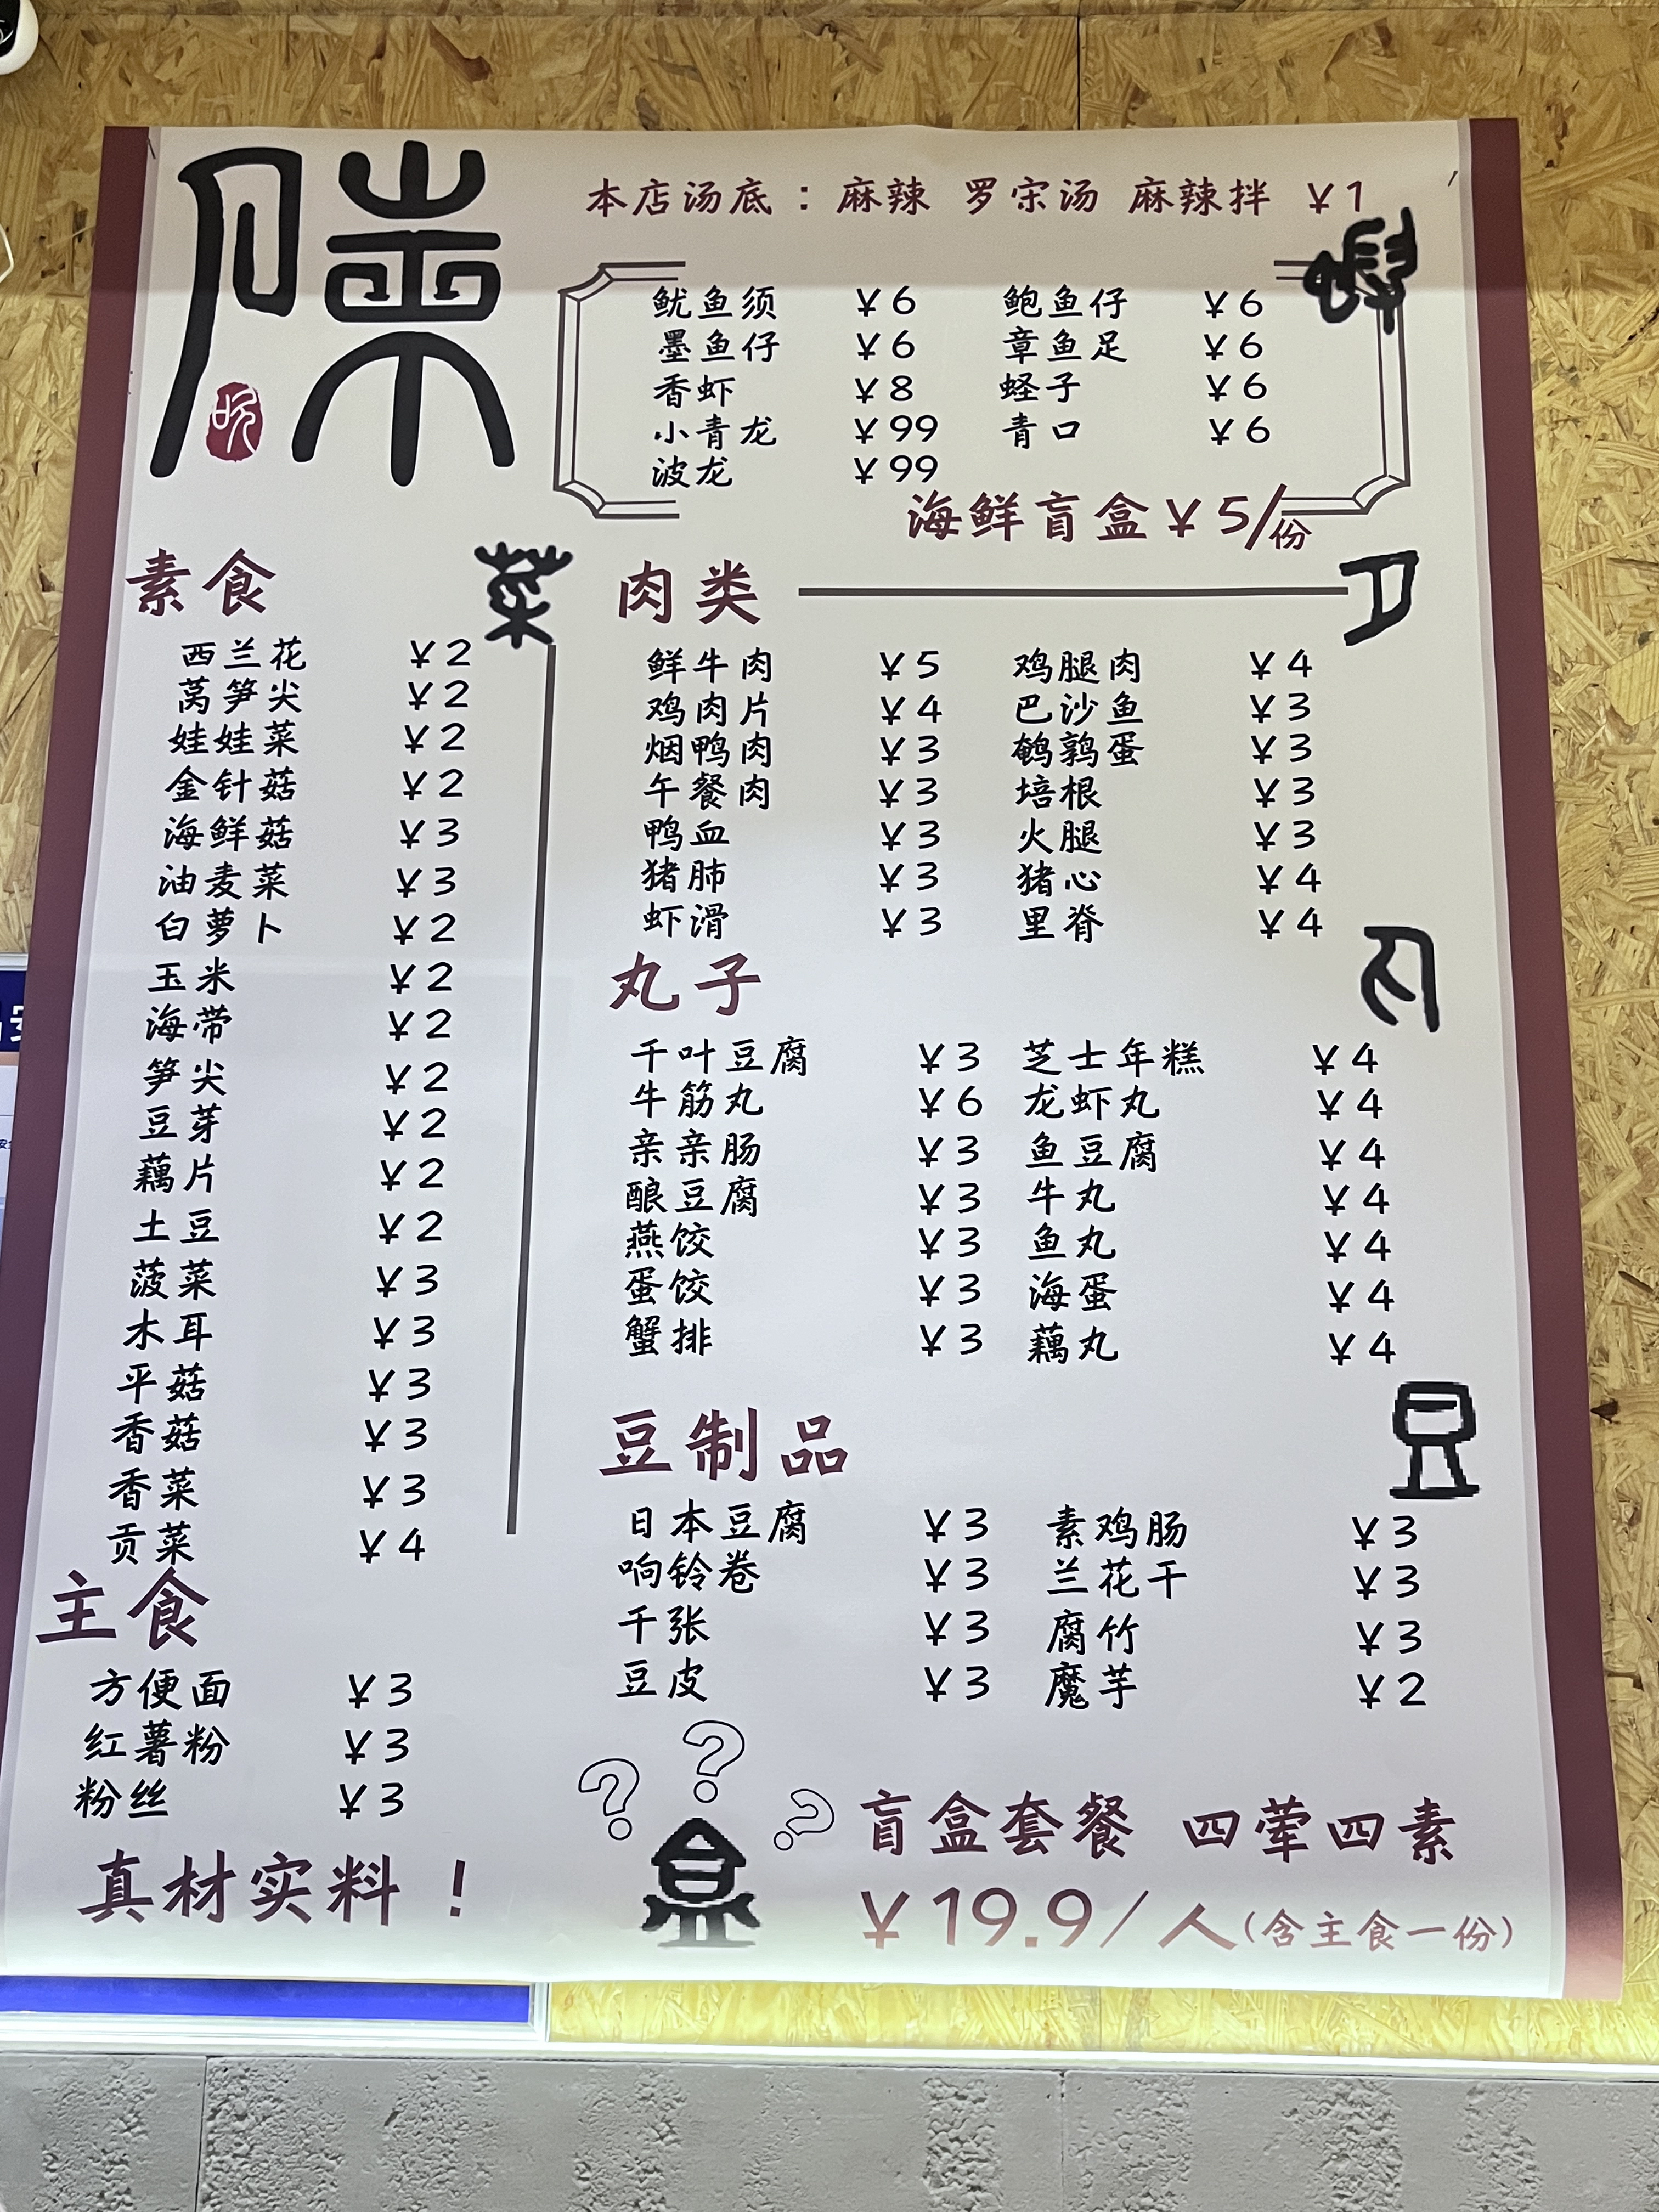 本店汤底：麻辣 罗宋汤 麻辣拌 ¥1
鱿鱼须 ¥6 鲍鱼仔 ¥6
墨鱼仔 ¥6 章鱼足 ¥6
香虾 ¥8 蛏子 ¥6
小青龙 ¥99 青口 ¥6
波龙 ¥99
海鲜盲盒¥5/份
素食 菜
西兰花 ¥2
莴笋尖 ¥2
娃娃菜 ¥2
金针菇 ¥2
海鲜菇 ¥3
油麦菜 ¥3
白萝卜 ¥2
玉米 ¥2
海带 ¥2
笋尖 ¥2
豆芽 ¥2
藕片 ¥2
土豆 ¥2
菠菜 ¥3
木耳 ¥3
平菇 ¥3
香菇 ¥3
香菜 ¥3
贡菜 ¥4
主食
方便面 ¥3
红薯粉 ¥3
粉丝 ¥3
真材实料！
肉类
鲜牛肉 ¥5 鸡腿肉 ¥4
鸡肉片 ¥4 巴沙鱼 ¥3
烟鸭肉 ¥3 鹌鹑蛋 ¥3
午餐肉 ¥3 培根 ¥3
鸭血 ¥3 火腿 ¥3
猪肺 ¥3 猪心 ¥4
虾滑 ¥3 里脊 ¥4
丸子
千叶豆腐 ¥3 芝士年糕 ¥4
牛筋丸 ¥6 龙虾丸 ¥4
亲亲肠 ¥3 鱼豆腐 ¥4
酿豆腐 ¥3 牛丸 ¥4
燕饺 ¥3 鱼丸 ¥4
蛋饺 ¥3 海蛋 ¥4
蟹排 ¥3 藕丸 ¥4
豆制品 豆
日本豆腐 ¥3 素鸡肠 ¥3
响铃卷 ¥3 兰花干 ¥3
千张 ¥3 腐竹 ¥3
豆皮 ¥3 魔芋 ¥2
? ? ?
盲盒套餐 四荤四素
¥19.9/人(含主食一份)